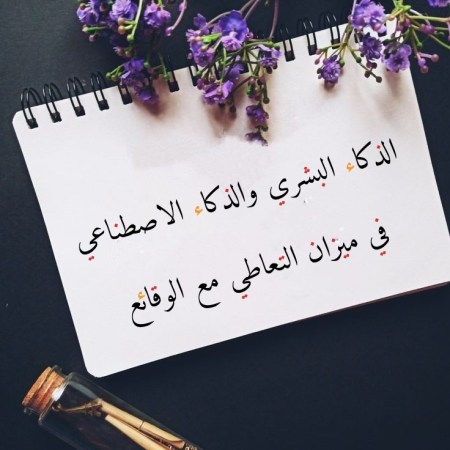 الذكاء البشري والذكاء الاصطناعي
في ميزان التعاطي مع الوقائع